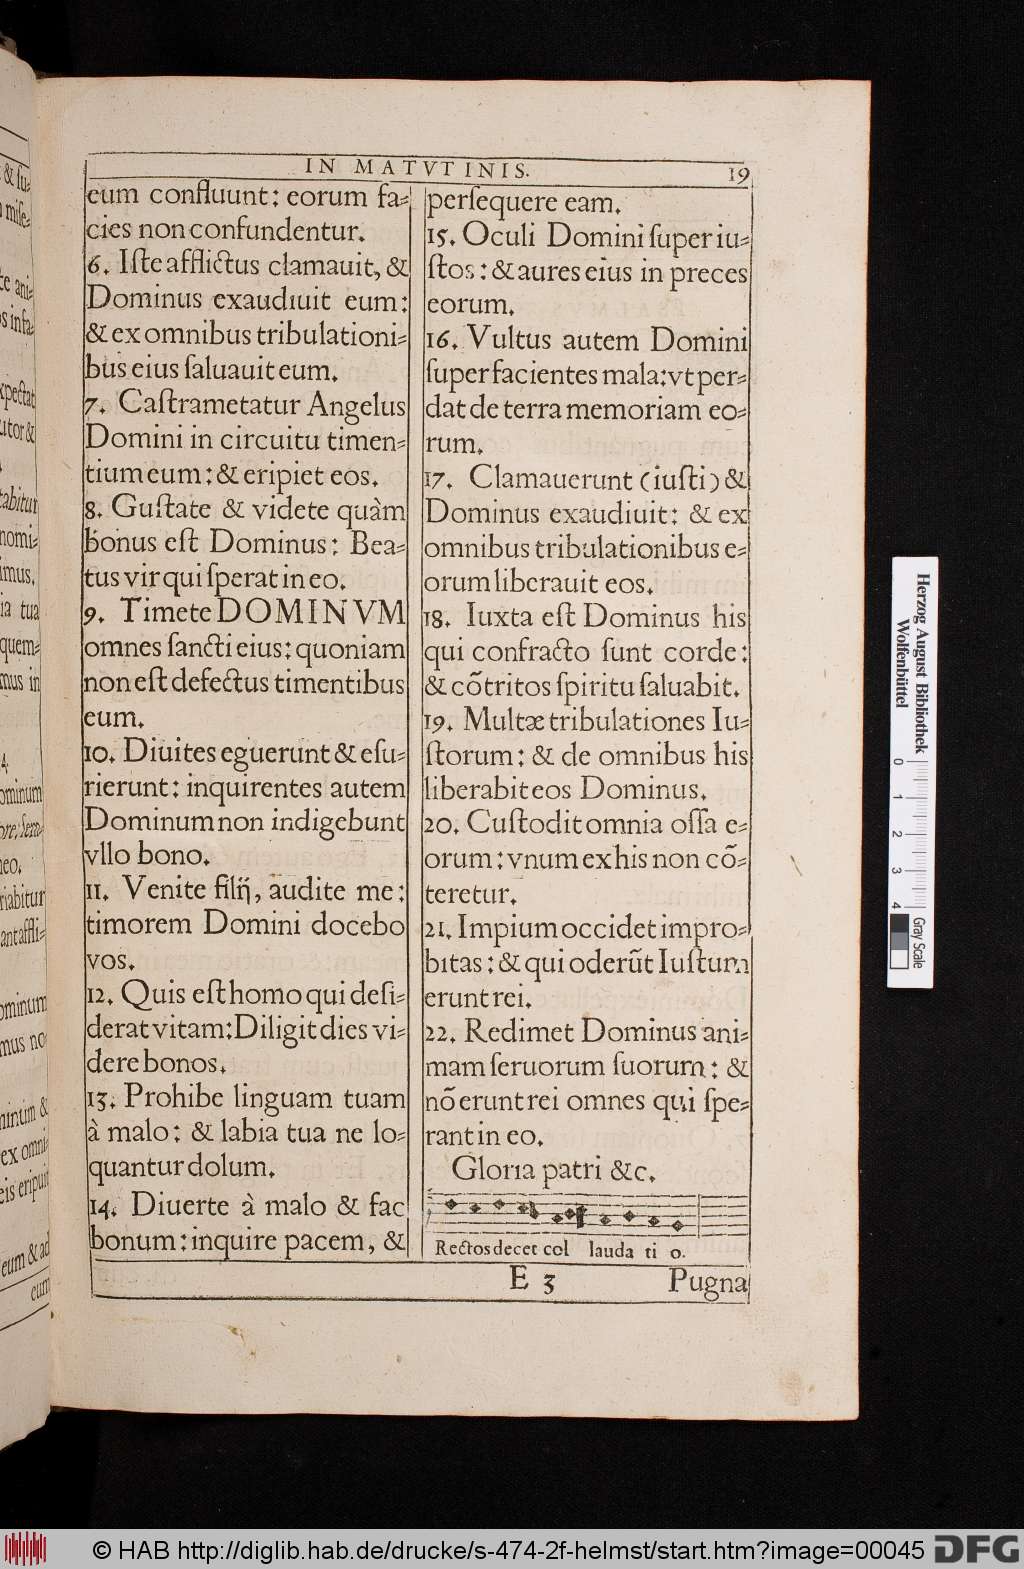 IN MATVTINIS. 19
eum confluunt: eorum fa-
cies non confundentur.
6. Iſte afflictus clamauit, &
Dominus exaudiuit eum:
& ex omnibus tribulationi-
bus eius ſaluauit eum.
7. Caſtrametatur Angelus
Domini in circuitu timen-
tium eum: & eripiet eos.
8. Guſtate & videte quàm
bonus eſt Dominus: Bea-
tus vir qui ſperat in eo.
9. Timete DOMINVM
omnes ſancti eius: quoniam
non eſt defectus timentibus
eum.
10. Diuites eguerunt & eſu-
rierunt: inquirentes autem
Dominum non indigebunt
vllo bono.
11. Venite filij, audite me:
timorem Domini docebo
vos.
12. Quis eſt homo qui deſi-
derat vitam: Diligit dies vi-
dere bonos.
13. Prohibe linguam tuam
à malo: & labia tua ne lo-
quantur dolum.
14. Diuerte à malo & fac
bonum: inquire pacem, &
perſequere eam.
15. Oculi Domini ſuper iu-
ſtos: & aures eius in preces
eorum.
16. Vultus autem Domini
ſuper facientes mala: vt per-
dat de terra memoriam eo-
rum.
17. Clamauerunt (iuſti) &
Dominus exaudiuit: & ex
omnibus tribulationibus e-
orum liberauit eos.
18. Iuxta eſt Dominus his
qui confracto ſunt corde:
& cõtritos ſpiritu ſaluabit.
19. Multæ tribulationes Iu-
ſtorum: & de omnibus his
liberabit eos Dominus.
20. Cuſtodit omnia oſſa e-
orum: vnum ex his non cõ-
teretur.
21. Impium occidet impro-
bitas: & qui oderũt Iuſtum
erunt rei.
22. Redimet Dominus ani-
mam ſeruorum ſuorum: &
nõ erunt rei omnes qui ſpe-
rant in eo.
Gloria patri &c.
Rectos decet col lauda ti o.
E 3 Pugna
Herzog August Bibliothek
Wolfenbüttel
0 1 2 3 4
Gray Scale
© HAB http://diglib.hab.de/drucke/s-474-2f-helmst/start.htm?image=00045 DFG